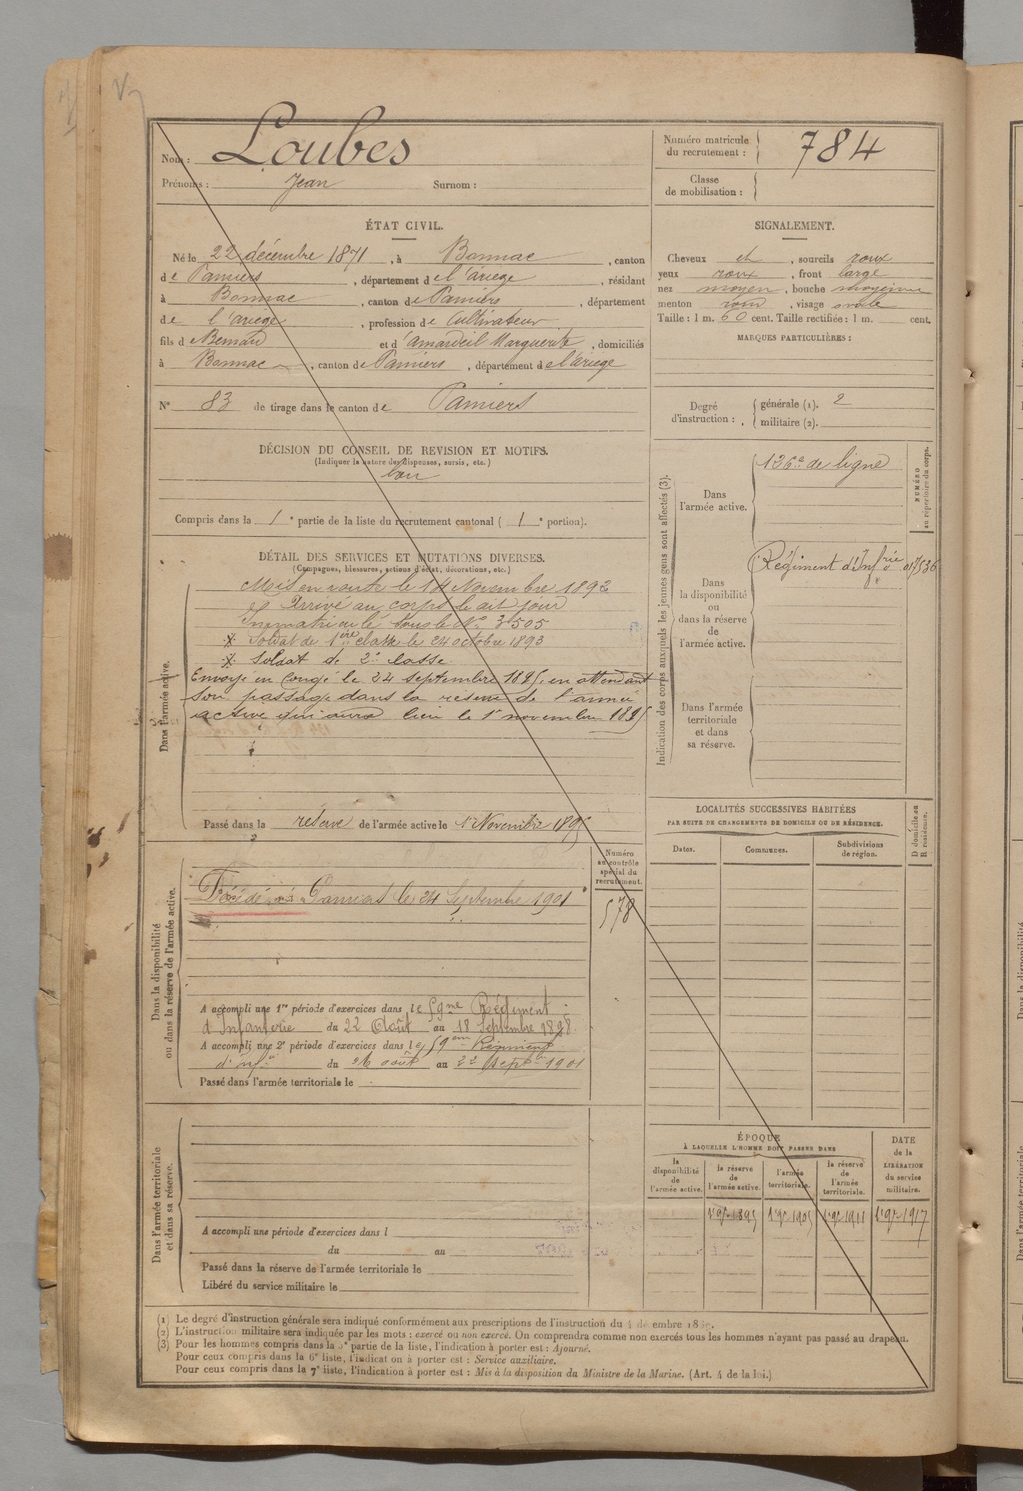 Nom : Loubes
Prénoms : Jean Surnom :
Numéro matricule du recrutement : 784
Classe de mobilisation :
ÉTAT CIVIL.
Né le 22 décembre 1871, à Bonnac, canton
de Pamiers, département de l'ariege, résidant
à Bonnac, canton de Pamiers, département
de l'ariege, profession de Cultivateur
fils de Bernard et d'amardeil Marguerite, domiciliés
à Bonnac, canton de Pamiers, département de l'ariege
N° 83 de tirage dans le canton de Pamiers
SIGNALEMENT.
Cheveux et, sourcils roux
yeux roux, front large
nez moyen, bouche moyenne
menton rond, visage ovale
Taille : 1 m. 60 cent. Taille rectifiée : 1 m. cent.
MARQUES PARTICULIÈRES :
Degré d'instruction : générale (1). 2
militaire (2).
DÉCISION DU CONSEIL DE REVISION ET MOTIFS.
(Indiquer la nature des dispenses, sursis, etc.)
bon
Compris dans la 1e partie de la liste du recrutement cantonal (1e portion).
DÉTAIL DES SERVICES ET MUTATIONS DIVERSES.
(Campagnes, blessures, actions d'éclat, décorations, etc.)
Dans l'armée active.
Mis en route le 14 Novembre 1892
Arrivé au corps le dit jour
Immatriculé sous le N° 3505
Soldat de 1ère classe le 24 octobre 1893
Soldat de 2e classe
Envoyé en congé le 24 septembre 1895 en attendant
son passage dans la réserve de l'armée
active qui aura lieu le 1er novembre 1895
Passé dans la réserve de l'armée active le 1er Novembre 1895
Indication des corps auxquels les jeunes gens sont affectés (3).
NUMÉRO au répertoire du corps.
Dans l'armée active.
126e de ligne
Dans la disponibilité ou dans la réserve de l'armée active.
Régiment d'Infrie
Dans l'armée territoriale et dans sa réserve.
LOCALITÉS SUCCESSIVES HABITÉES
PAR SUITE DE CHANGEMENTS DE DOMICILE OU DE RÉSIDENCE.
Dates. Communes. Subdivisions de région. D domicile ou R résidence.
Dans la disponibilité ou dans la réserve de l'armée active.
Numéro au contrôle spécial du recrutement.
578
Décédé à Pamiers le 24 Septembre 1901
A accompli une 1re période d'exercices dans le 59me Régiment
d'Infanterie du 22 Août au 18 Septembre 1898
A accompli une 2e période d'exercices dans le 59em Régiment
d'Infie du 26 août au 22 Septbre 1901
Passé dans l'armée territoriale le
ÉPOQUE
À LAQUELLE L'HOMME DOIT PASSER DANS
la disponibilité de l'armée active. la réserve de l'armée active. l'armée territoriale. la réserve de l'armée territoriale.
DATE de la LIBÉRATION du service militaire.
1er 9bre 1895 1er 9bre 1905 1er 9bre 1911 1er 9bre 1917
Dans l'armée territoriale et dans sa réserve.
A accompli une période d'exercices dans l
du au
Passé dans la réserve de l'armée territoriale le
Libéré du service militaire le
(1) Le degré d'instruction générale sera indiqué conformément aux prescriptions de l'instruction du 4 décembre
(2) L'instruction militaire sera indiquée par les mots : exercé ou non exercé. On comprendra comme non exercés tous les hommes n'ayant pas passé au drapeau.
(3) Pour les hommes compris dans la 5e partie de la liste, l'indication à porter est : Ajourné.
Pour ceux compris dans la 6e liste, l'indication à porter est : Service auxiliaire.
Pour ceux compris dans la 7e liste, l'indication à porter est : Mis à la disposition du Ministre de la Marine. (Art. 4 de la loi.)